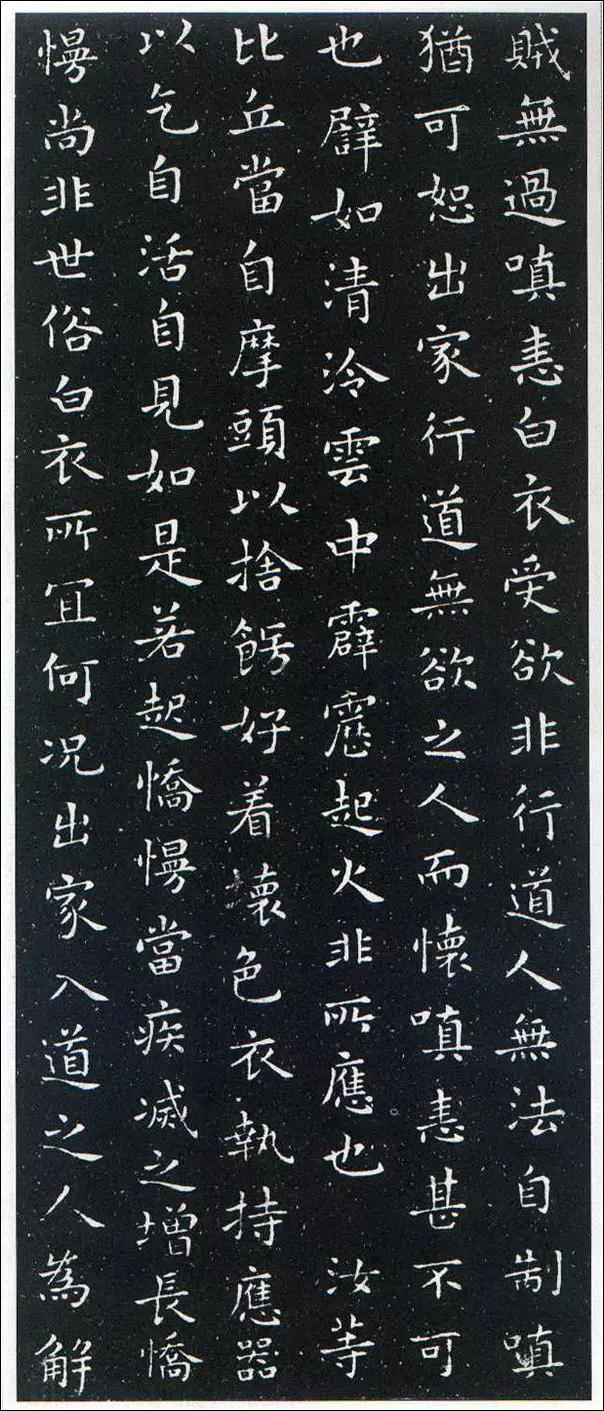 賊無過嗔恚白衣受欲非行道人無法自制嗔
猶可恕出家行道無欲之人而懷嗔恚甚不可
也譬如清泠雲中霹靂起火非所應也 汝等
比丘當自摩頭以捨餝好着壞色衣執持應器
以乞自活自見如是若起憍慢當疾滅之增長憍
慢尚非世俗白衣所宜何況出家入道之人為解